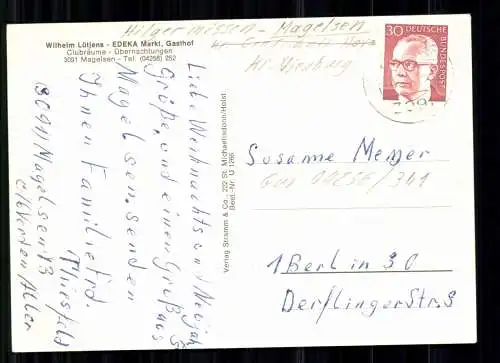 Hilgermissen - Magelsen
Kr. Nienburg
Wilhelm Lütjens - EDEKA Markt, Gasthof
Clubräume - Übernachtungen
3091 Magelsen - Tel. (04256) 252
30
DEUTSCHE
BUNDESPOST
Liebe Weihnachts und Neujahrs
Grüße, und einen Gruß aus
Magelsen. senden
Ihnen Familie Frd.
Thiesfeld
3091 Magelsen 13
Verden Aller
Verlag Stramm & Co., 222 St. Michaelisdonn/Holst
Best.-Nr. U 1265
Susanne Memer
04256/341
1 Berlin 30
Derflinger Str. 8